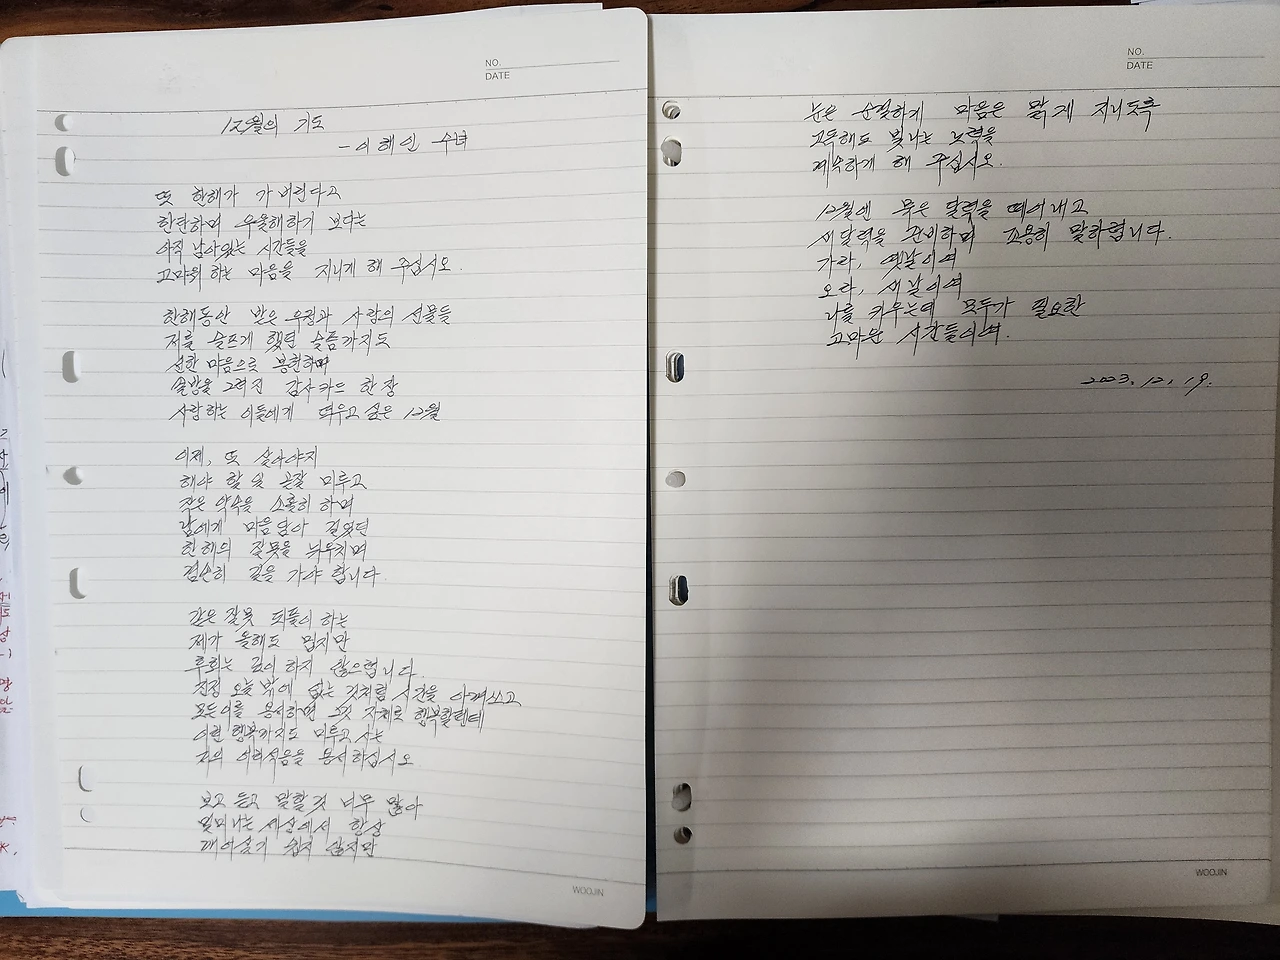 NO.
DATE
12월의 기도
- 이해인 수녀
또 한해가 가 버린다고
한탄하며 우울해하기 보다는
아직 남아있는 시간들을
고마워 하는 마음을 지니게 해 주십시오.
한해동안 받은 우정과 사랑의 선물들
저를 슬프게 했던 슬픔까지도
선한 마음으로 봉헌하며
솔방울 그려진 감사카드 한장
사랑하는 이들에게 띄우고 싶은 12월
이제, 또 살아야지
해야 할 일 곧잘 미루고
작은 약속을 소홀히 하며
남에게 마음닫아 걸었던
한해의 잘못을 뉘우치며
겸손히 길을 가야 합니다.
같은 잘못 되풀이 하는
제가 올해도 밉지만
후회는 깊이 하지 않으렵니다.
진정 오늘 밖에 없는 것처럼 시간을 아껴쓰고
모든이를 용서하면 그것 자체로 행복할텐데
이런 행복까지도 미루고 사는
저의 어리석음을 용서하십시오
보고 듣고 말할 것 너무 많아
멀미나는 세상에서 항상
깨어살기 쉽지 않지만
WOOJIN
NO.
DATE
눈은 순결하게 마음은 맑게 지니도록
고독해도 빛나는 노력을
계속하게 해 주십시오.
12월엔 묵은 달력을 떼어내고
새 달력을 준비하며 조용히 말하렵니다.
가라, 옛날이여
오라, 새 날이여
나를 키우는데 모두가 필요한
고마운 시간들이여.
2023. 12. 19.
WOOJIN